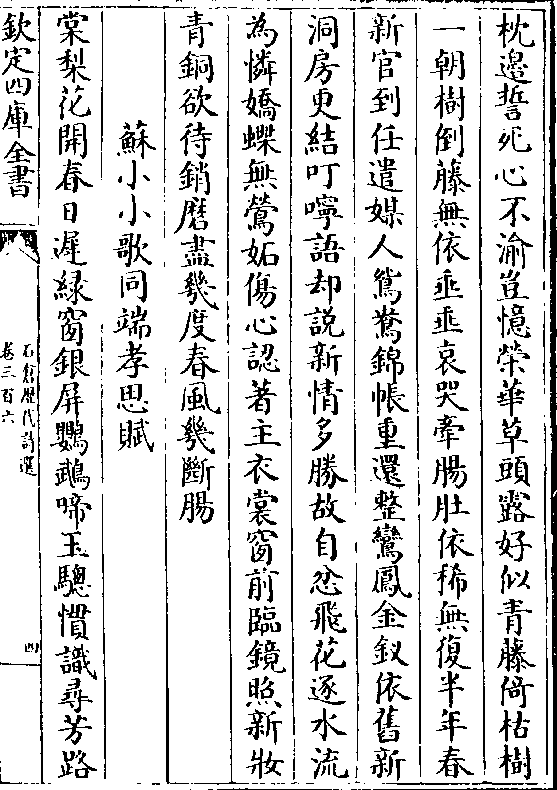 枕邊誓死心不渝豈憶榮華草頭露好似青藤倚枯樹
一朝樹倒藤無依垂垂哀哭牽腸肚依稀無復半年春
新官到任遣媒人鴛鴦錦帳重還整鸞鳳金釵依舊新
洞房更結叮嚀語却說新情多勝故自忿飛花逐水流
為憐嬌蝶無鶯妬傷心認著主衣裳窗前臨鏡照新妝
青銅欲待銷磨盡幾度春風幾斷腸
蘇小小歌同端孝思賦
棠梨花開春日遲緑窗銀屏鸚鵡啼玉驄慣識尋芳路
欽定四庫全書
石倉歷代詩選
卷三百六
四